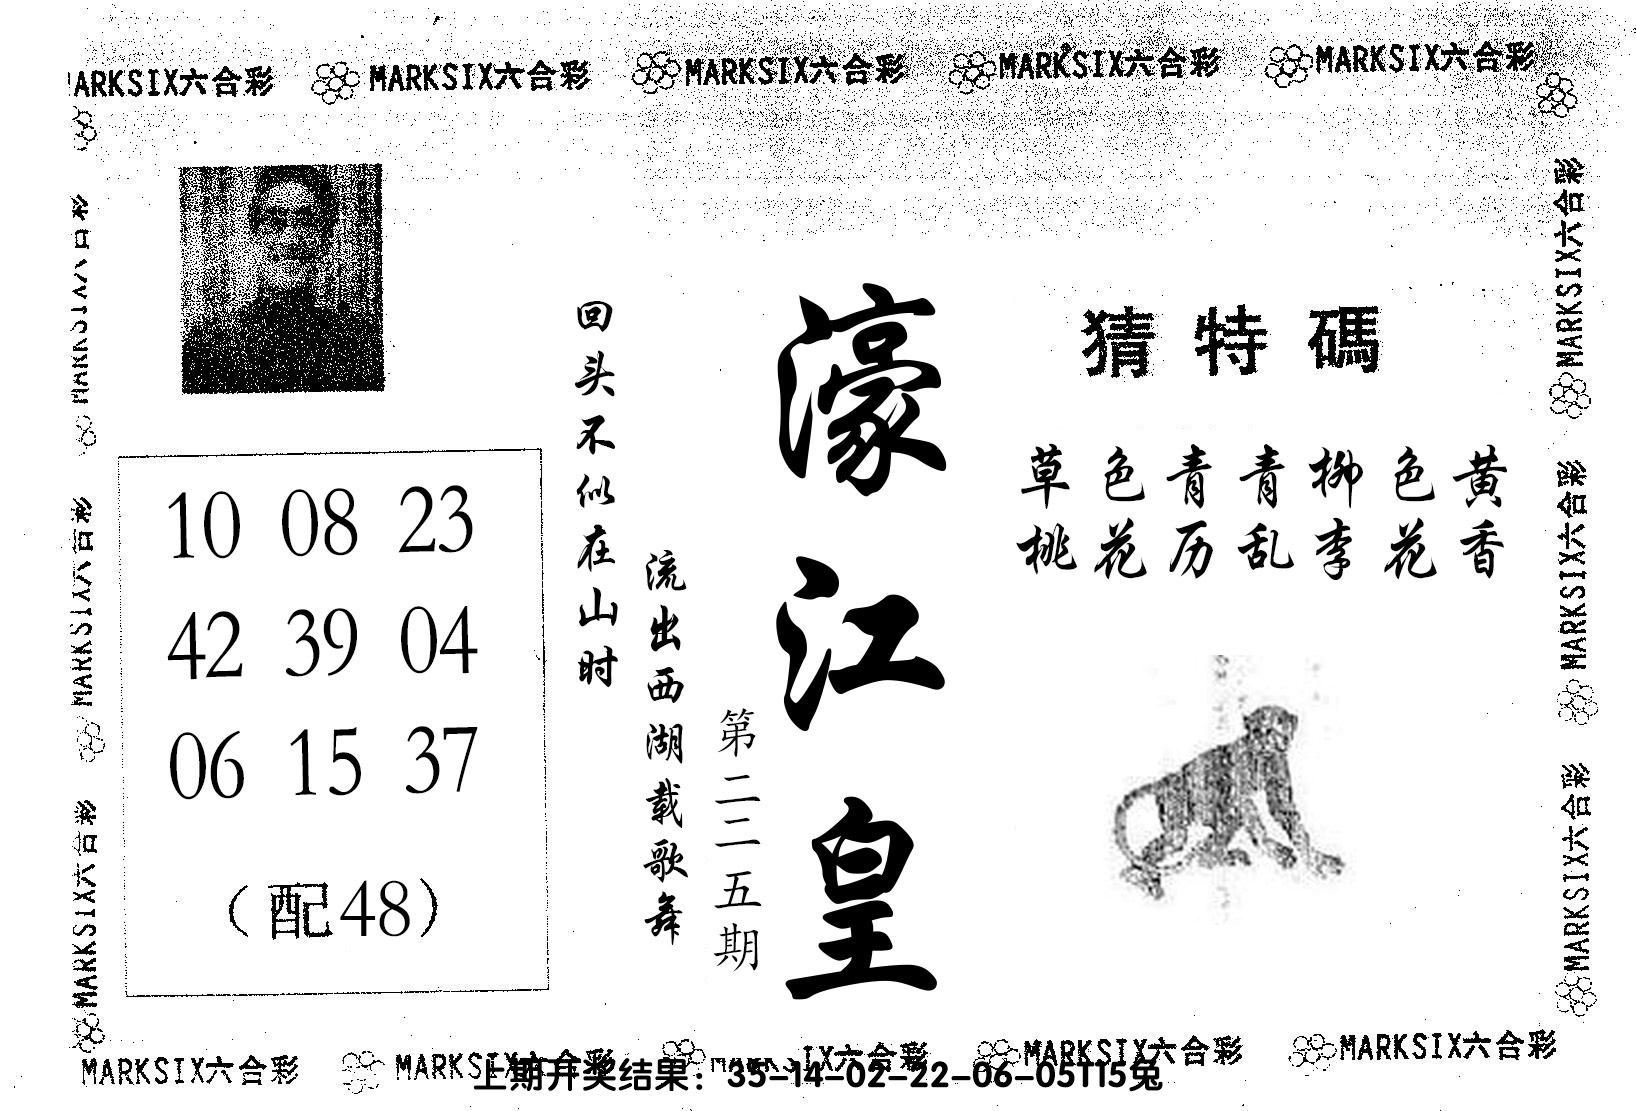 MARKSIX六合彩 MARKSIX六合彩 MARKSIX六合彩 MARKSIX六合彩 MARKSIX六合彩
MARKSIX六合彩 MARKSIX六合彩 MARKSIX六合彩
10 08 23
42 39 04
06 15 37
(配48)
回头不似在山时
流出西湖载歌舞
第二二五期
濠江皇
猜特碼
草色青青柳色黄
桃花历乱李花香
MARKSIX六合彩 MARKSIX六合彩 MARKSIX六合彩
MARKSIX六合彩 MARKSIX六合彩 MARKSIX六合彩 MARKSIX六合彩 MARKSIX六合彩
上期开奖结果：35-14-02-22-06-05T15兔